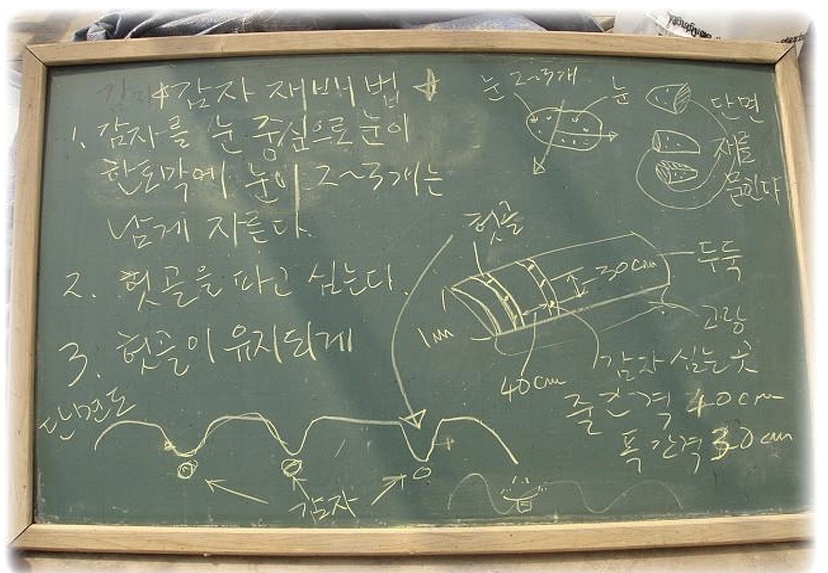 감자 재배법
1. 감자를 눈 중심으로 눈이
한토막에 눈이 2~3개는
남게 자른다.
2. 헛골을 파고 심는다.
3. 헛골이 유지되게
단면도
감자
눈 2~3개
눈
단면
재를
묻힌다
헛골
30cm
두둑
고랑
1m
40cm
감자 심는 곳
줄간격 40cm
폭간격 30cm